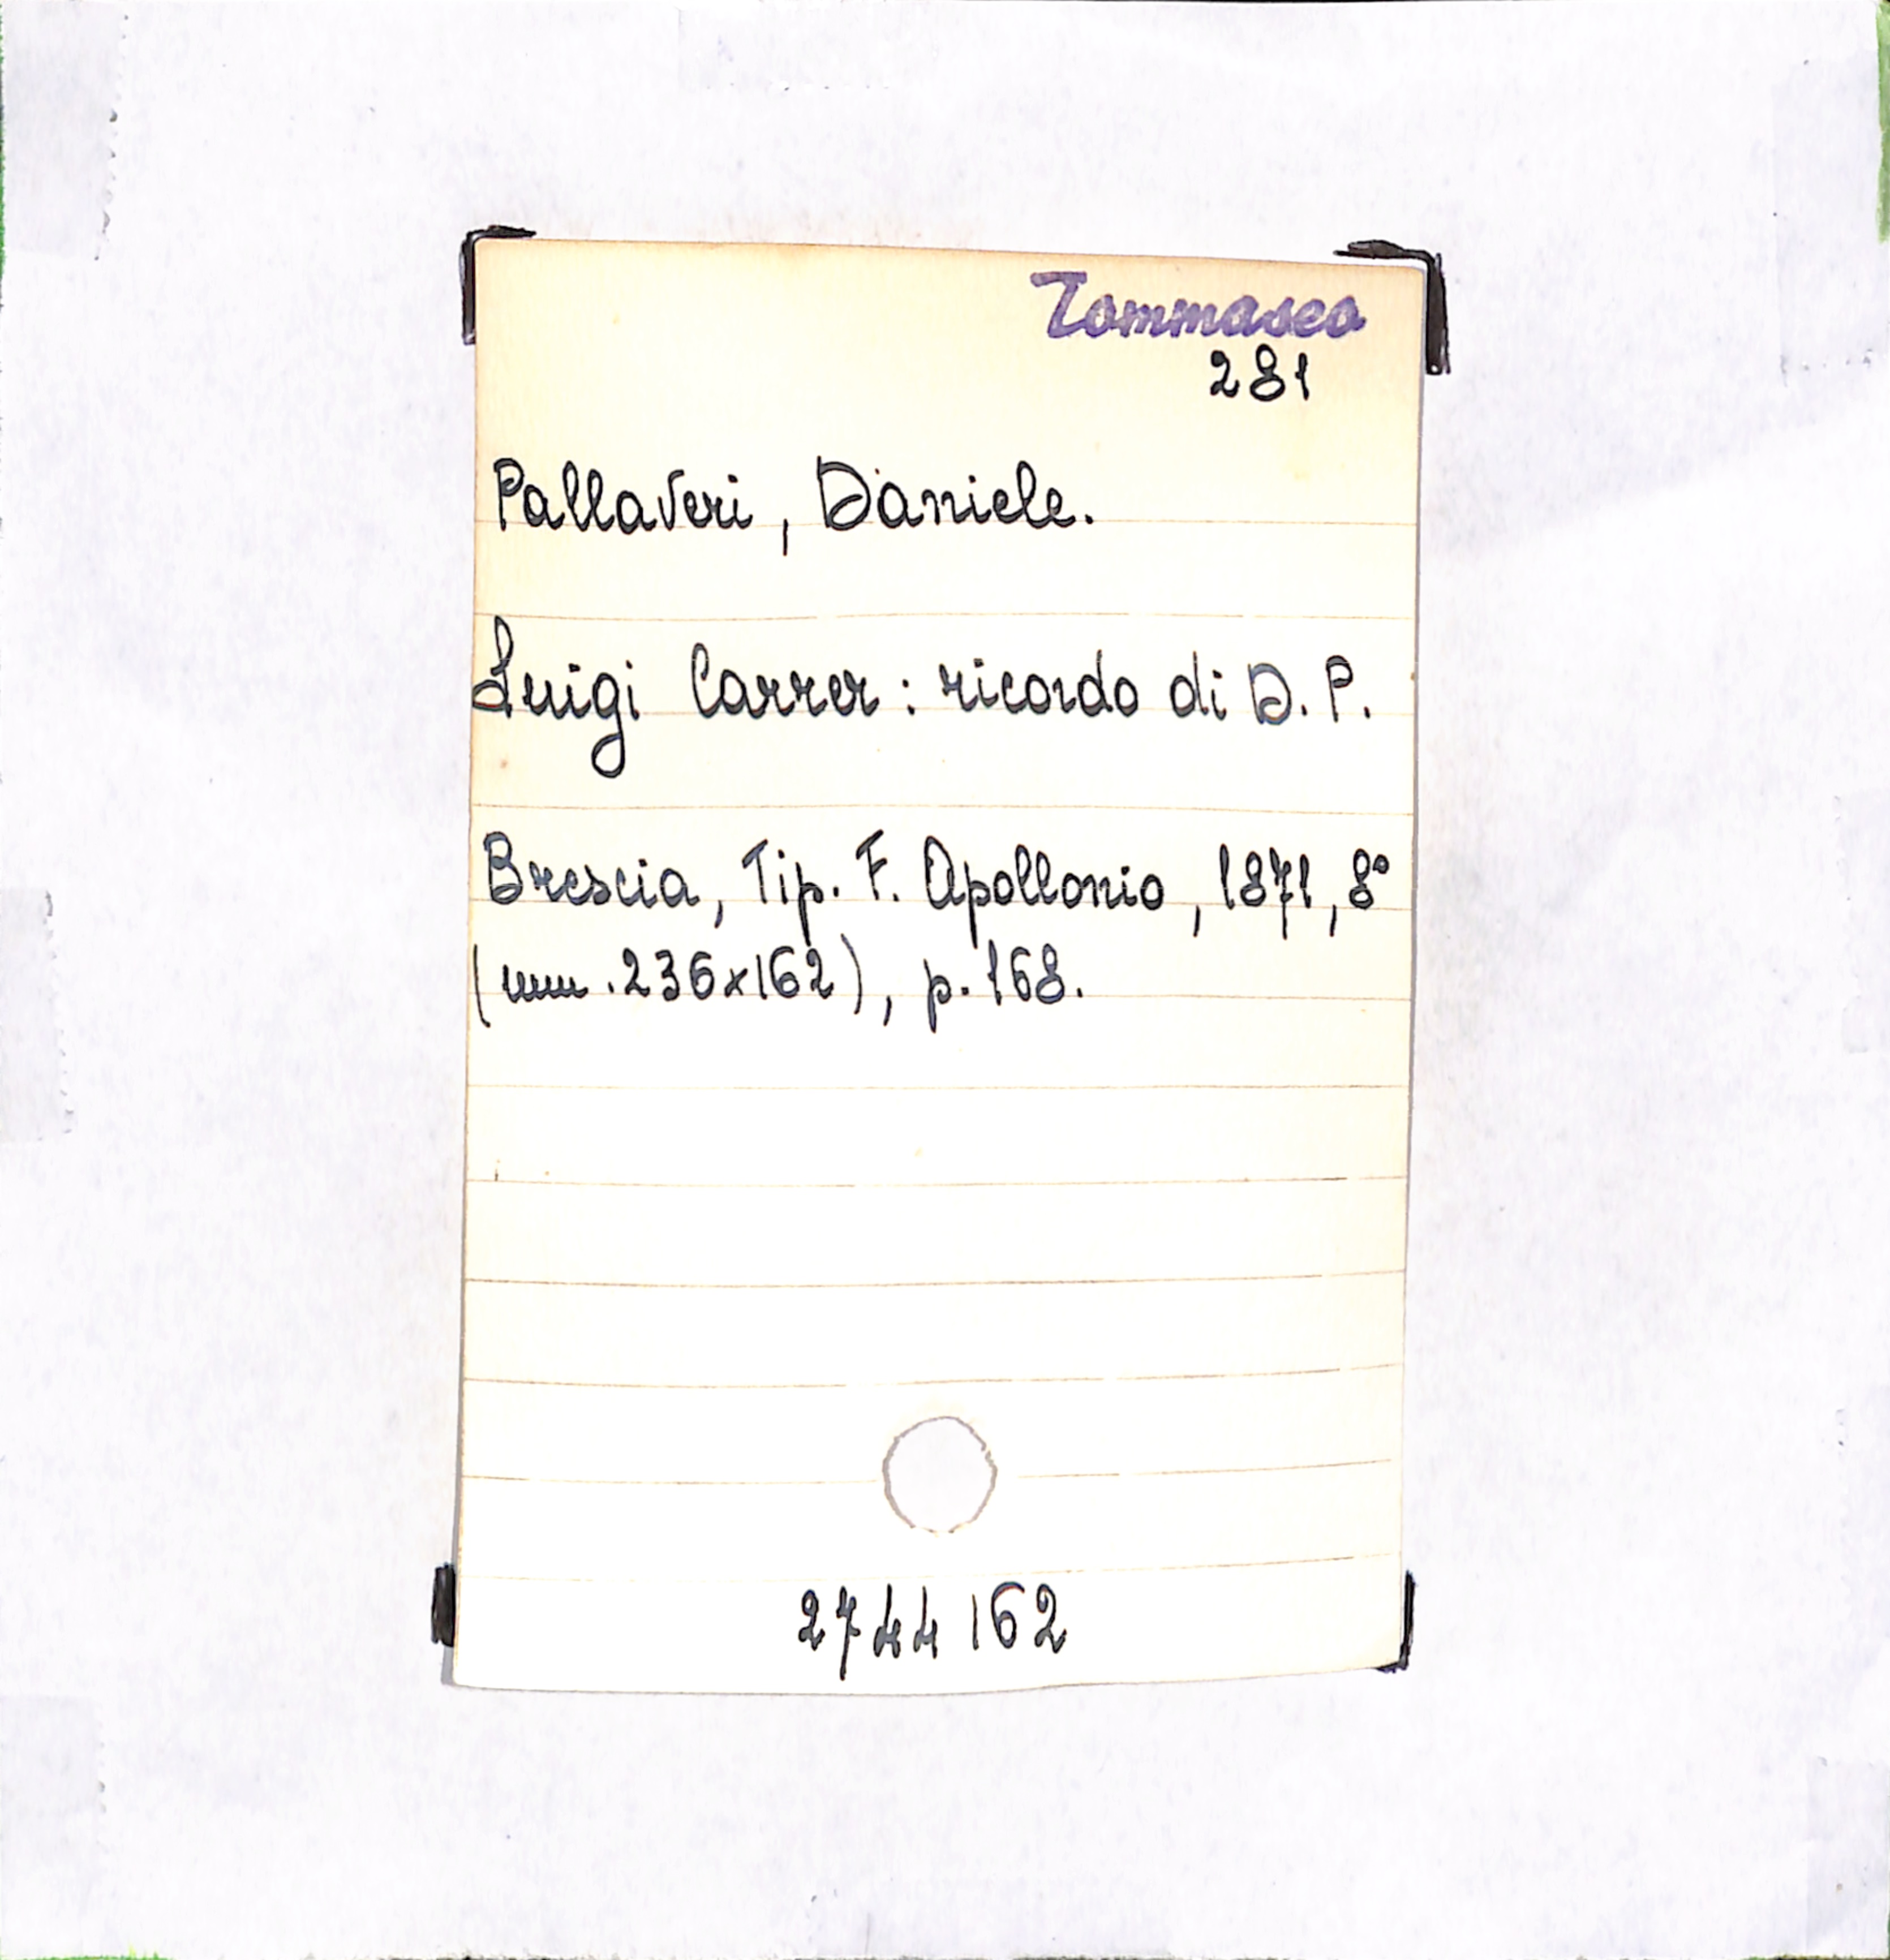 Tommaseo
281
Pallaveri, Daniele.
Luigi Carrer: ricordo di D. P.
Brescia, Tip. F. Apollonio, 1871, 8°
(mm. 236x162), p. 168.
2744162